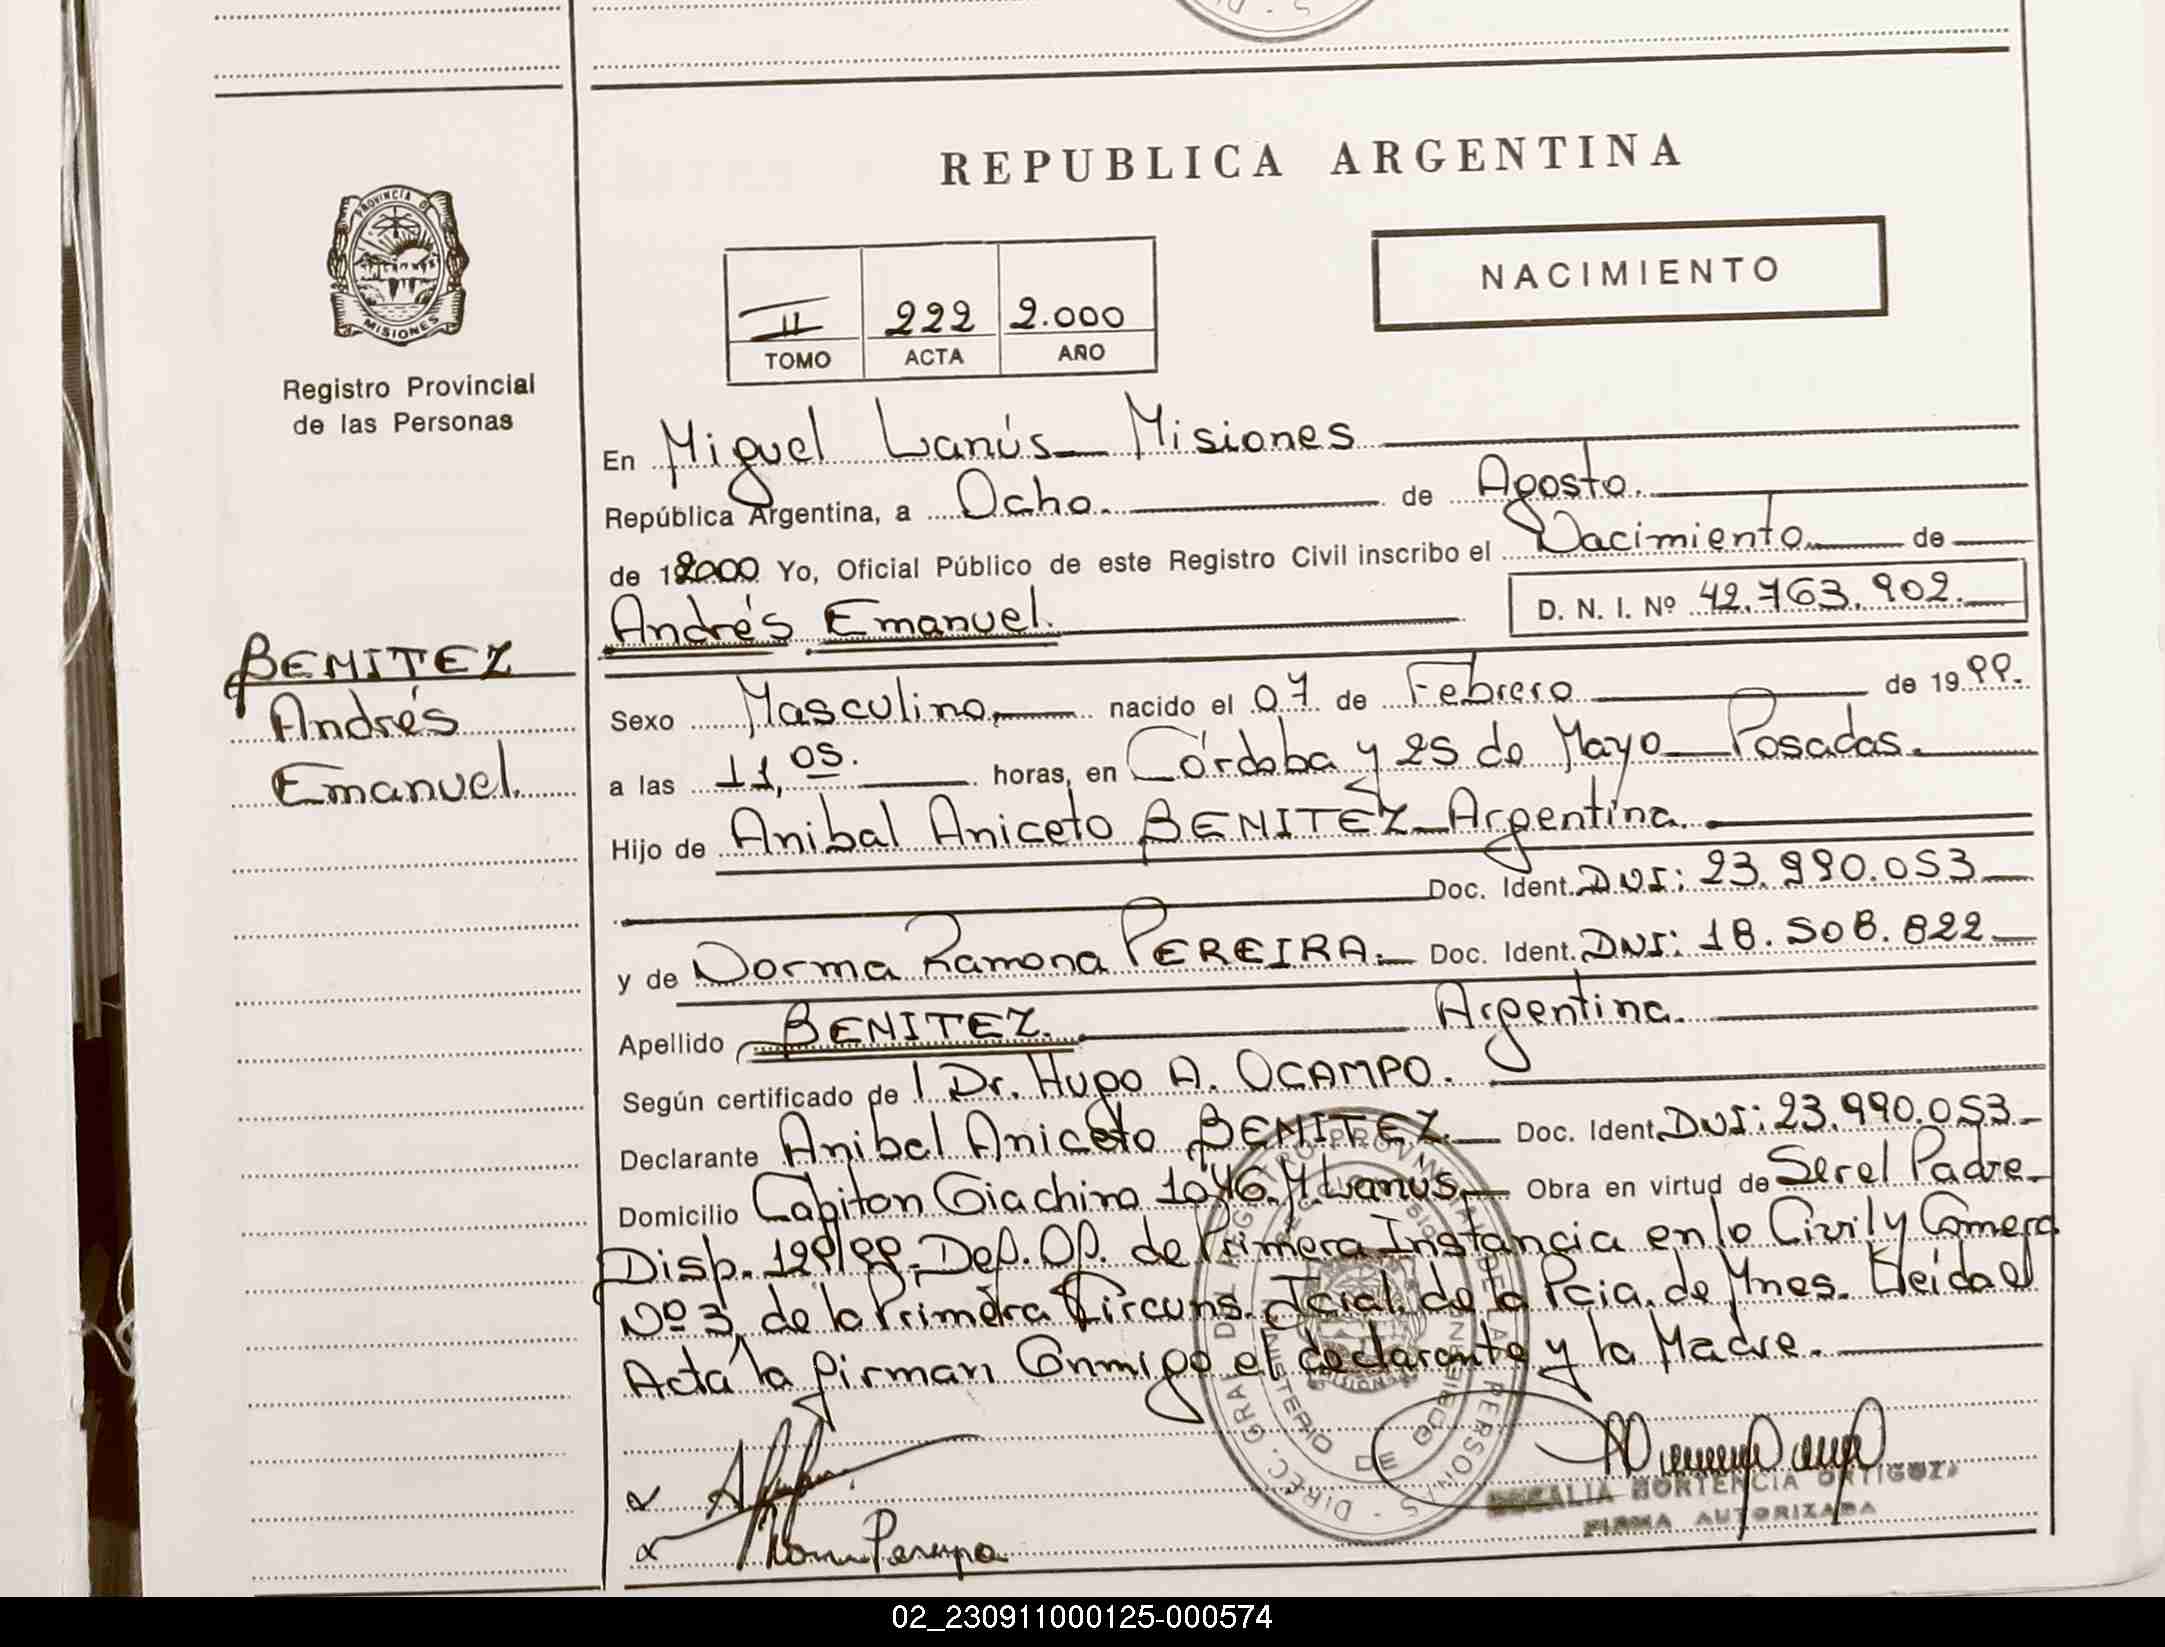 REPUBLICA ARGENTINA
PROVINCIA DE
MISIONES
Registro Provincial
de las Personas
NACIMIENTO
II 222 2.000
TOMO ACTA AÑO
En Miguel Lanús Misiones
República Argentina, a Ocho. de Agosto.
de 12000 Yo, Oficial Público de este Registro Civil inscribo el Nacimiento de
Andrés Emanuel. D. N. I. Nº 42.763.902.
BENITEZ
Andrés
Emanuel.
Sexo Masculino, nacido el 07 de Febrero de 1999.
a las 11,05. horas, en Córdoba y 25 de Mayo Posadas.
Hijo de Anibal Aniceto BENITEZ Argentina.
Doc. Ident. DNI: 23.990.053
y de Norma Ramona PEREIRA. Doc. Ident. DNI: 18.508.822
Apellido BENITEZ. Argentina.
Según certificado de l Dr. Hugo A. OCAMPO.
Declarante Anibal Aniceto BENITEZ. Doc. Ident. DNI: 23.990.053
Domicilio Capitan Giachino 1046. M. Lanus, Obra en virtud de Ser el Padre.
Disp. 129/99. Def. Of. de Primera Instancia en lo Civil y Comerc
Nº 3, de la Primera Circuns. Jcial. de la Pcia. de Mnes. Leida el
Acta la firman Conmigo el declarante y la Madre.
HORTENCIA ORTIGOZA
FIRMA AUTORIZADA
02_230911000125-000574